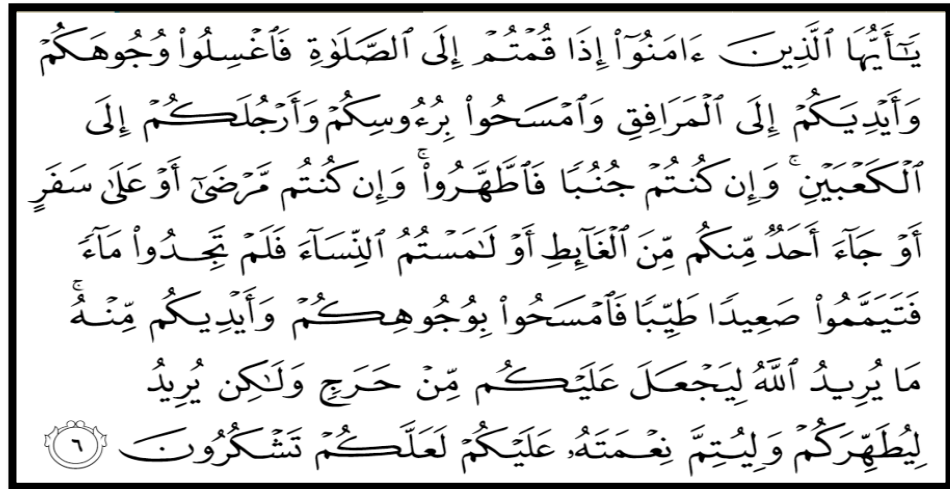 يَٰٓأَيُّهَا ٱلَّذِينَ ءَامَنُوٓاْ إِذَا قُمۡتُمۡ إِلَى ٱلصَّلَوٰةِ فَٱغۡسِلُواْ وُجُوهَكُمۡ
وَأَيۡدِيَكُمۡ إِلَى ٱلۡمَرَافِقِ وَٱمۡسَحُواْ بِرُءُوسِكُمۡ وَأَرۡجُلَكُمۡ إِلَى
ٱلۡكَعۡبَيۡنِۚ وَإِن كُنتُمۡ جُنُبٗا فَٱطَّهَّرُواْۚ وَإِن كُنتُم مَّرۡضَىٰٓ أَوۡ عَلَىٰ سَفَرٍ
أَوۡ جَآءَ أَحَدٞ مِّنكُم مِّنَ ٱلۡغَآئِطِ أَوۡ لَٰمَسۡتُمُ ٱلنِّسَآءَ فَلَمۡ تَجِدُواْ مَآءٗ
فَتَيَمَّمُواْ صَعِيدٗا طَيِّبٗا فَٱمۡسَحُواْ بِوُجُوهِكُمۡ وَأَيۡدِيكُم مِّنۡهُۚ
مَا يُرِيدُ ٱللَّهُ لِيَجۡعَلَ عَلَيۡكُم مِّنۡ حَرَجٖ وَلَٰكِن يُرِيدُ
لِيُطَهِّرَكُمۡ وَلِيُتِمَّ نِعۡمَتَهُۥ عَلَيۡكُمۡ لَعَلَّكُمۡ تَشۡكُرُونَ ٦